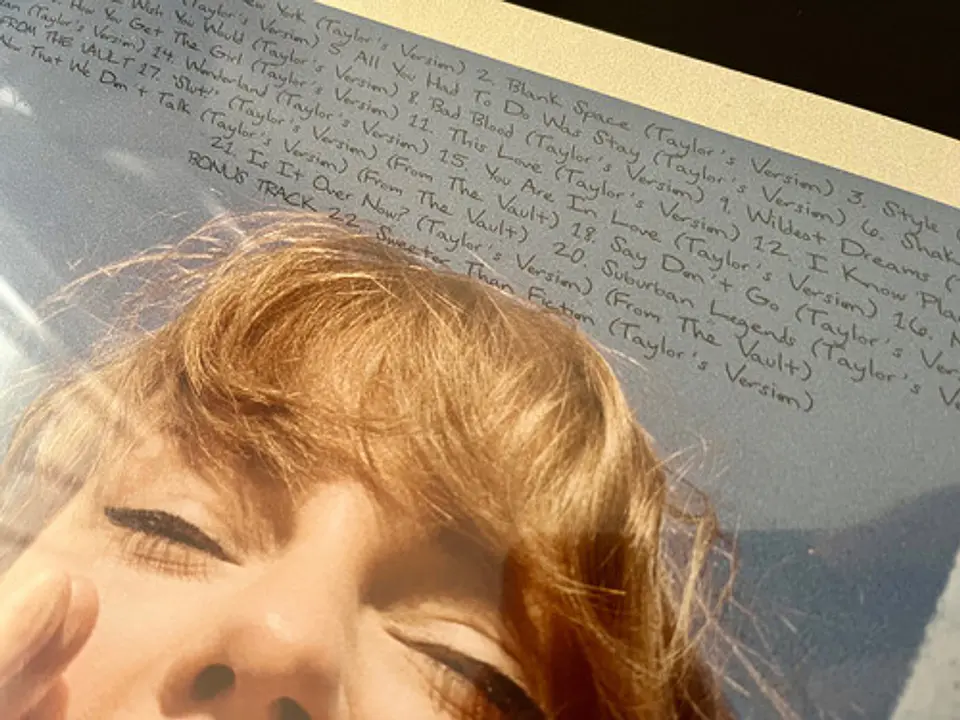 York (Taylor's Version) 2. Blank Space (Taylor's Version) 3. Style
(Taylor's Version) 5. All You Had To Do Was Stay (Taylor's Version) 6. Shak
Wish You Would (Taylor's Version) 8. Bad Blood (Taylor's Version) 9. Wildest Dreams (
How You Get The Girl (Taylor's Version) 11. This Love (Taylor's Version) 12. I Know Pla
(Taylor's Version) 14. Wonderland (Taylor's Version) 15. You Are In Love (Taylor's Version) 16. N
FROM THE VAULT 17. "Slut!" (Taylor's Version) (From The Vault) 18. Say Don't Go (Taylor's Ver
Now That We Don't Talk (Taylor's Version) (From The Vault) 20. Suburban Legends (Taylor's Ve
21. Is It Over Now? (Taylor's Version) (From The Vault)
BONUS TRACK 22. Sweeter Than Fiction (Taylor's Version)